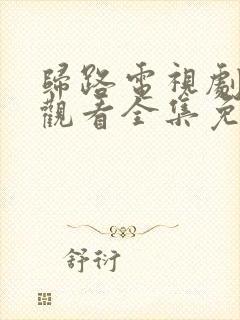 歸路電視劇
觀看全集免
舒衍